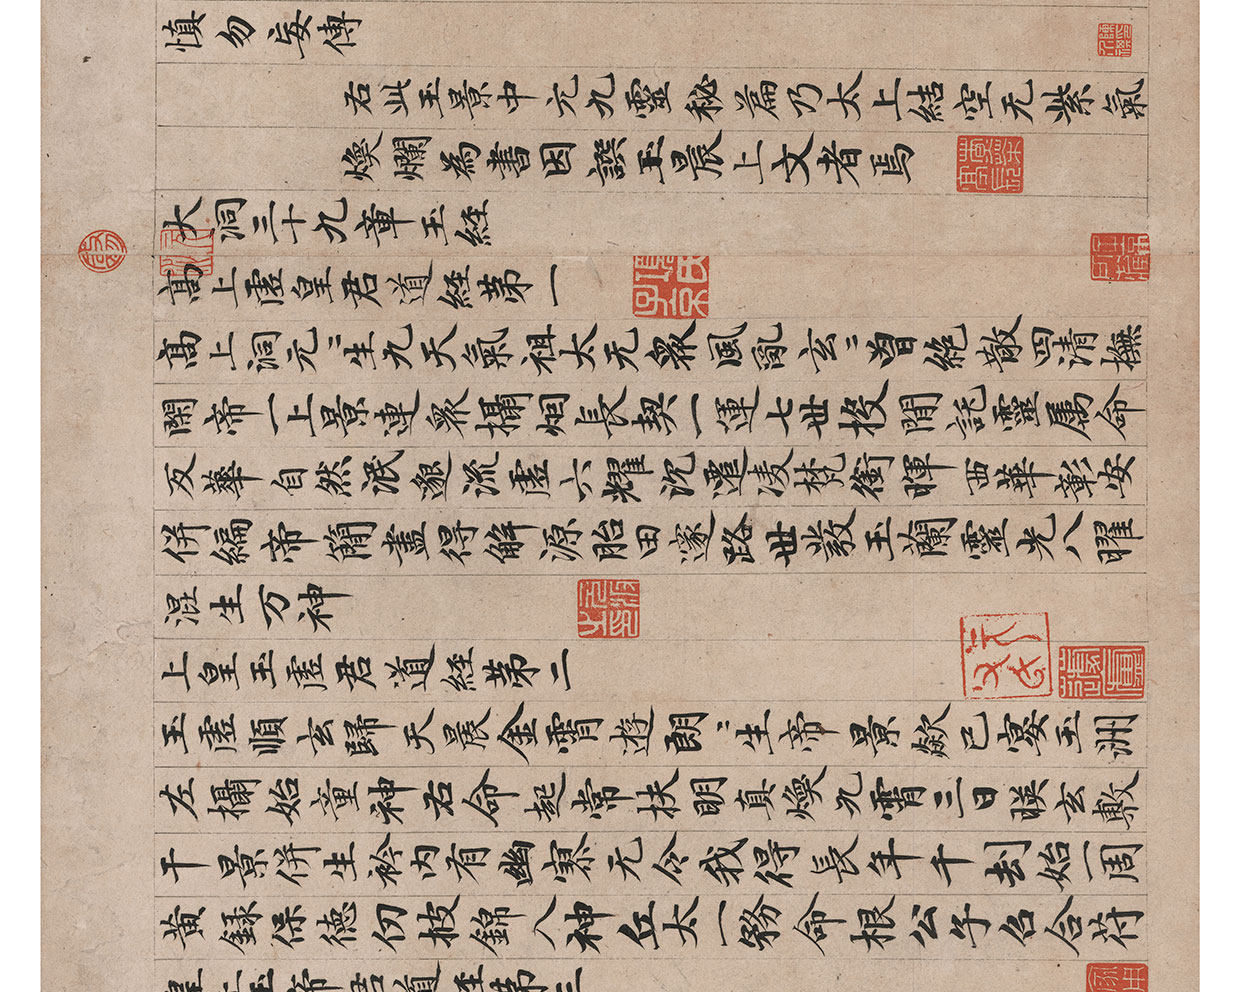 慎勿妄傳
右此玉景中元九靈秘篇乃太上結空无紫氣
煥爛為書因譔玉晨上文者焉
大洞三十九章玉經
高上虛皇君道經第一
高上洞元〻生九天氣祖太无眾風亂玄〻曾絕散四清撫
閑帝一上景連眾攝烟長契一運七世投閒託靈属命
反華自然泯邈流虛六耀沉遷凌梵衝暉西華彰安
併編帝簡盡得解源胎田邃路世敷玉蘭靈光八曜
混生万神
上皇玉虛君道經第二
玉虛順玄歸天晨金霄遊朗〻生帝景歘已宴玉洲
左攝始童神右命起常扶明真煥九霄三日暎玄敷
千景併生衿内有幽寥无令我得長年千刧始一周
黃錄保德仞披錦入神丘太一務命根公子召合符